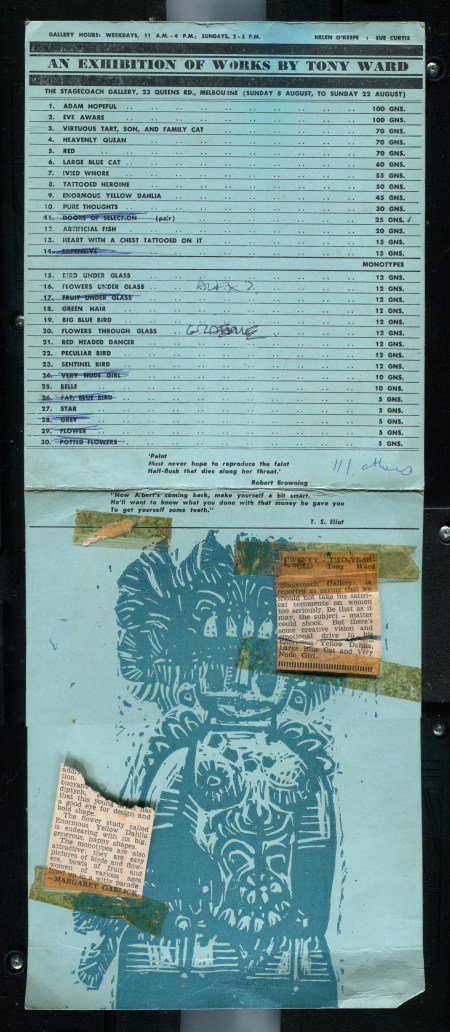 GALLERY HOURS: WEEKDAYS, 11 A.M. - 4 P.M.; SUNDAYS, 2-5 P.M. HELEN O'KEEFE : SUE CURTIS
AN EXHIBITION OF WORKS BY TONY WARD
THE STAGECOACH GALLERY, 23 QUEENS RD., MELBOURNE (SUNDAY 8 AUGUST, TO SUNDAY 22 AUGUST)
1. ADAM HOPEFUL 100 GNS.
2. EVE AWARE 100 GNS.
3. VIRTUOUS TART, SON, AND FAMILY CAT 70 GNS.
4. HEAVENLY QUEAN 70 GNS.
5. RED 70 GNS.
6. LARGE BLUE CAT 60 GNS.
7. IVIED WHORE 55 GNS.
8. TATTOOED HEROINE 50 GNS.
9. ENORMOUS YELLOW DAHLIA 45 GNS.
10. PURE THOUGHTS 30 GNS.
11. DOORS OF SELECTION (pair) 25 GNS.
12. ARTIFICIAL FISH 20 GNS.
13. HEART WITH A CHEST TATTOOED ON IT 15 GNS.
14. EXPENSIVE 15 GNS.
MONOTYPES
15. BIRD UNDER GLASS 12 GNS.
16. FLOWERS UNDER GLASS 12 GNS.
17. FRUIT UNDER GLASS 12 GNS.
18. GREEN HAIR 12 GNS.
19. BIG BLUE BIRD 12 GNS.
20. FLOWERS THROUGH GLASS 12 GNS.
21. RED HEADED DANCER 12 GNS.
22. PECULIAR BIRD 12 GNS.
23. SENTINEL BIRD 12 GNS.
24. VERY NUDE GIRL 10 GNS.
25. BELLE 10 GNS.
26. FAT, BLUE BIRD 5 GNS.
27. STAR 5 GNS.
28. GREY 5 GNS.
29. FLOWER 5 GNS.
30. POTTED FLOWERS 5 GNS.
others
'Paint
Must never hope to reproduce the faint
Half-flush that dies along her throat.'
Robert Browning
"Now Albert's coming back, make yourself a bit smart.
He'll want to know what you done with that money he gave you
To get yourself some teeth."
T. S. Eliot
TWENTY-TWO-YEAR-
OLD Tony Ward
Stagecoach Gallery, is
reported as saying that we
should not take his satiri-
cal comments on women
too seriously. Be that as it
may, the subject-matter
could shock. But there's
some creative vision and
emotional drive in his
Enormous Yellow Dahlia,
Large Blue Cat and Very
Nude Girl.
tion.
buoyan
diptych,
that this young
a good eye for design and
bold shape.
The flower study called
Enormous Yellow Dahlia
is endearing with its big,
generous, happy shapes.
The monotypes are also
attractive; they are easy
pictures of birds and flow-
ers, bowls of fruit and
women of various ages
lined up in a witty parade
—MARGARET GARLICK